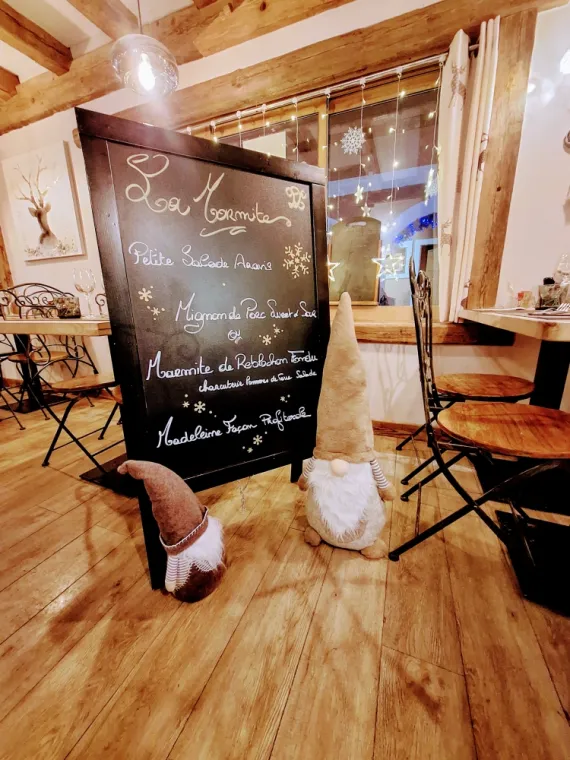 La Marmite
Petite Salade Aravis
Mignon de Porc Sweet & Sour
ou
Marmite de Reblochon Fondu
charcuterie Pommes de Terre Salade
Madeleine Façon Profiterole